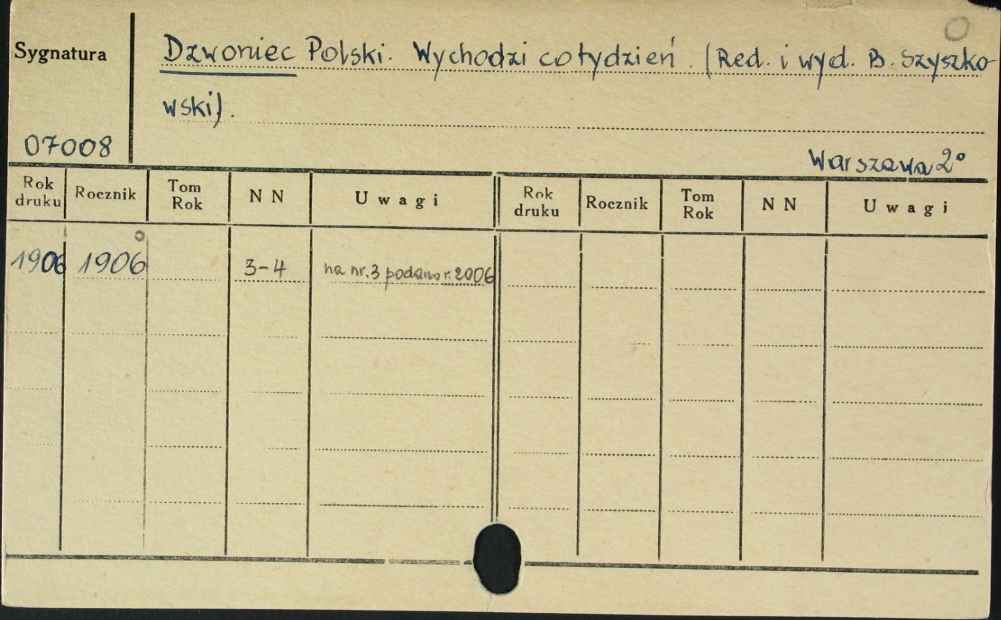 Sygnatura
Dzwoniec Polski. Wychodzi co tydzień. (Red. i wyd. B. Szyszko-
wski).
07008
Warszawa 2°
Rok druku Rocznik Tom Rok N N Uwagi Rok druku Rocznik Tom Rok N N Uwagi
1906 1906 3-4 na nr. 3 podano r. 2006